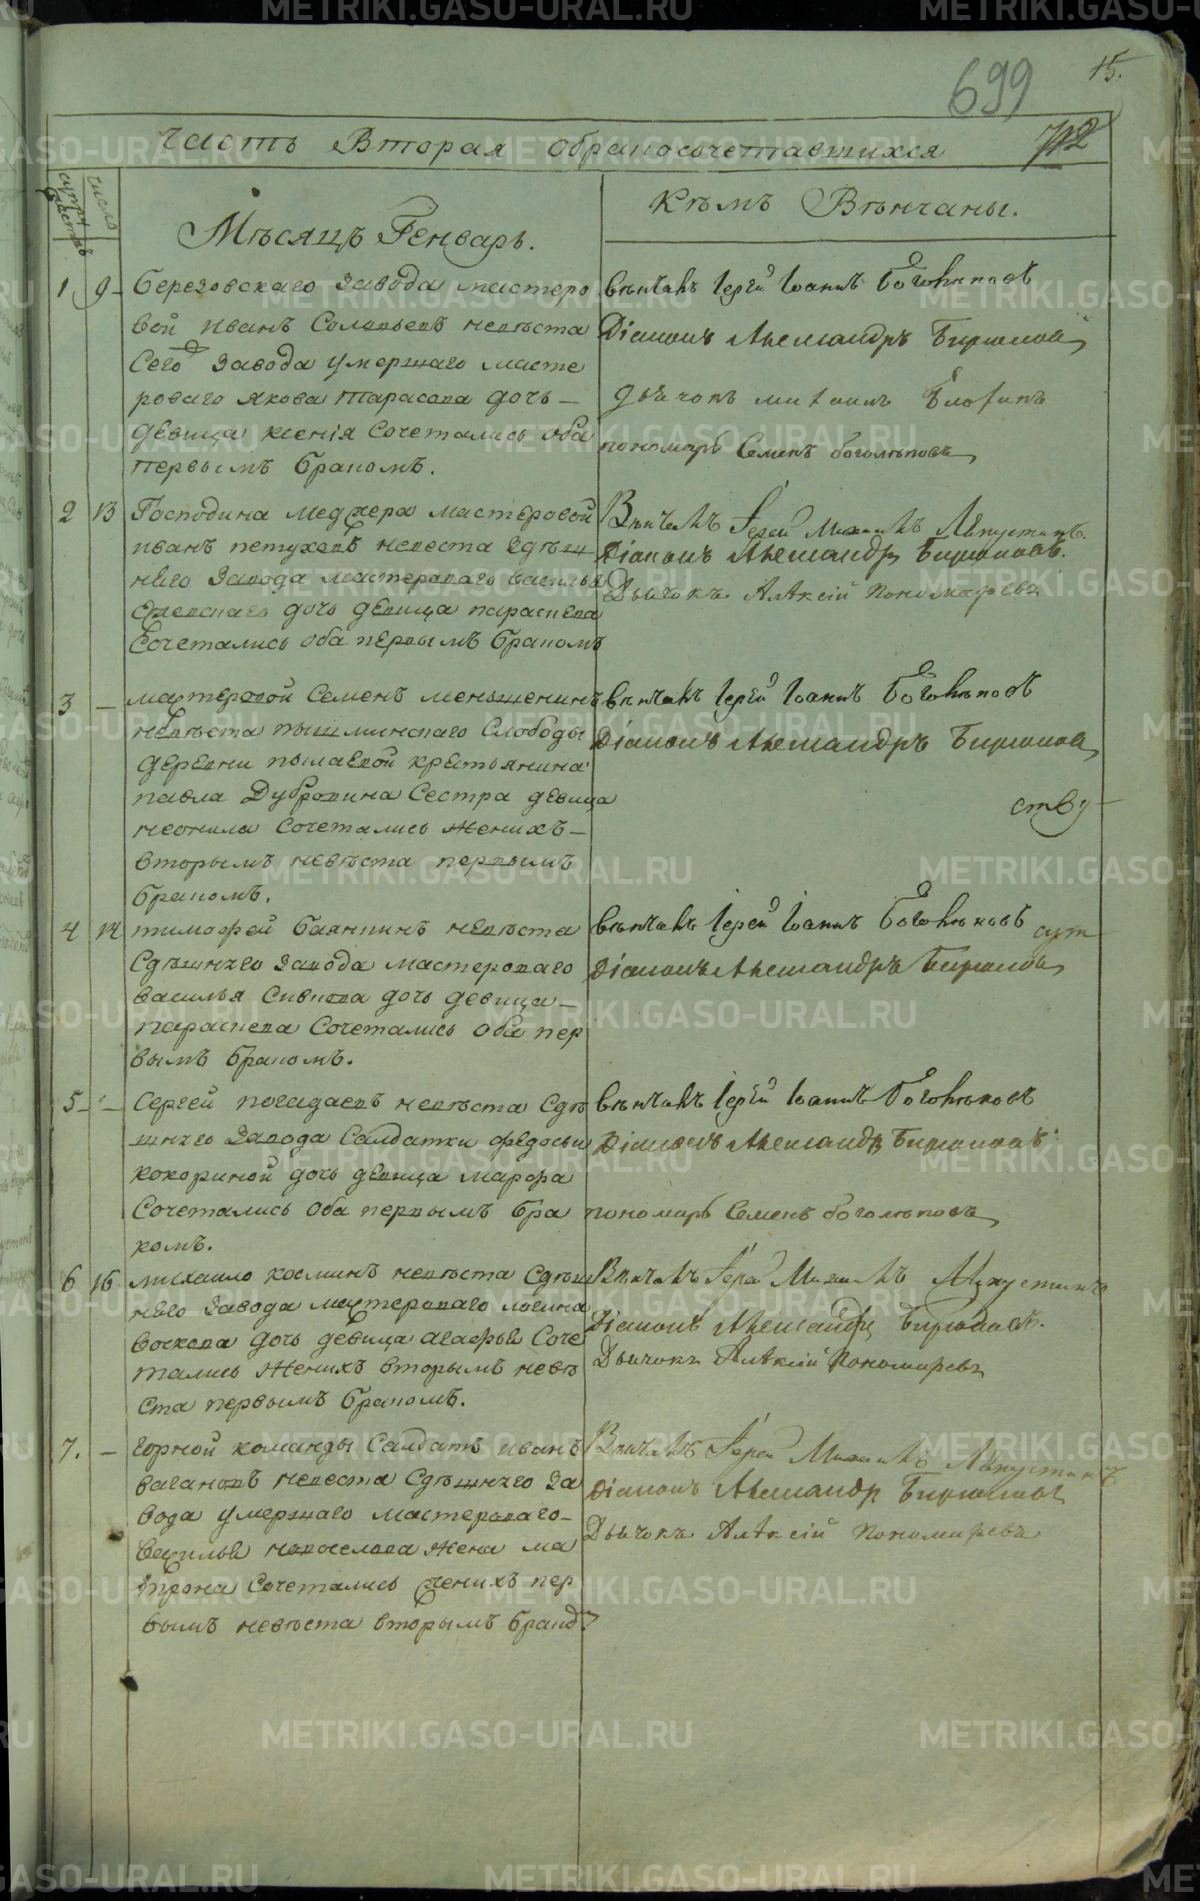 15.
699
Часть Вторая обракосочетавшихся
712
число
Мѣсяцъ Генварь.
Кѣмъ Вѣнчаны.
1 9 Березовскаго завода мастеро
вой иванъ Соловьевъ невѣста
Сего завода умершаго масте
роваго якова тарасова дочь —
девица ксенія Сочетались оба
первымъ бракомъ.
вѣнчалъ Іерей Іоаннъ Боголѣповъ
Діаконъ Александръ Бирюков
дьячокъ
пономарь Семенъ боголѣповъ
2 13 Господина меджера мастеровой
иванъ петуховъ невеста здѣш
няго завода мастероваго василья
дочь девица параскева
Сочетались оба первымъ бракомъ
Вѣнчалъ Іерей Михаилъ
Діаконъ Александръ Бирюковъ.
Дьячокъ Алексій Пономаревъ
3 — мастеровой Семенъ меньшенинъ
невѣста пышминскаго Слободы
деревни пылаевой крестьянина
павла Дубровина Сестра девица
неонила Сочетались женихъ —
вторымъ невѣста первымъ
бракомъ.
вѣнчалъ Іерей Іоаннъ Боголѣповъ
Діаконъ Александръ Бирюков
ству —
4 14 тимофей баянкинъ невѣста
Сдѣшняго завода мастероваго
василья Сивкова дочь девица —
параскева Сочетались оба пер
вымъ бракомъ.
вѣнчалъ Іерей Іоаннъ Боголѣповъ
Діаконъ Александръ Бирюков
5 — Сергей погадаевъ невѣста Сдѣ
шняго завода Салдатки федосьи
кокориной дочь девица марфа
Сочетались оба первымъ бра
комъ.
вѣнчалъ Іерей Іоаннъ Боголѣповъ
Діаконъ Александръ Бирюковъ
пономарь Семенъ боголѣповъ
6 16 михаило косминъ невѣста Сдѣш
няго завода мастероваго логина
воскова дочь девица агафья Соче
тались женихъ вторымъ невѣ
ста первымъ бракомъ.
Вѣнчалъ Іерей Михаилъ
Діаконъ Александръ Бирюковъ.
Дьячокъ Алексій Пономаревъ
7. — горной команды Салдатъ иванъ
вагановъ невеста Сдѣшняго за
вода умершаго мастероваго —
василья новоселова жена ма
трона Сочетались женихъ пер
вымъ невѣста вторымъ брако
Вѣнчалъ Іерей Михаилъ
Діаконъ Александръ Бирюков
Дьячокъ Алексій Пономаревъ
METRIKI.GASO-URAL.RU